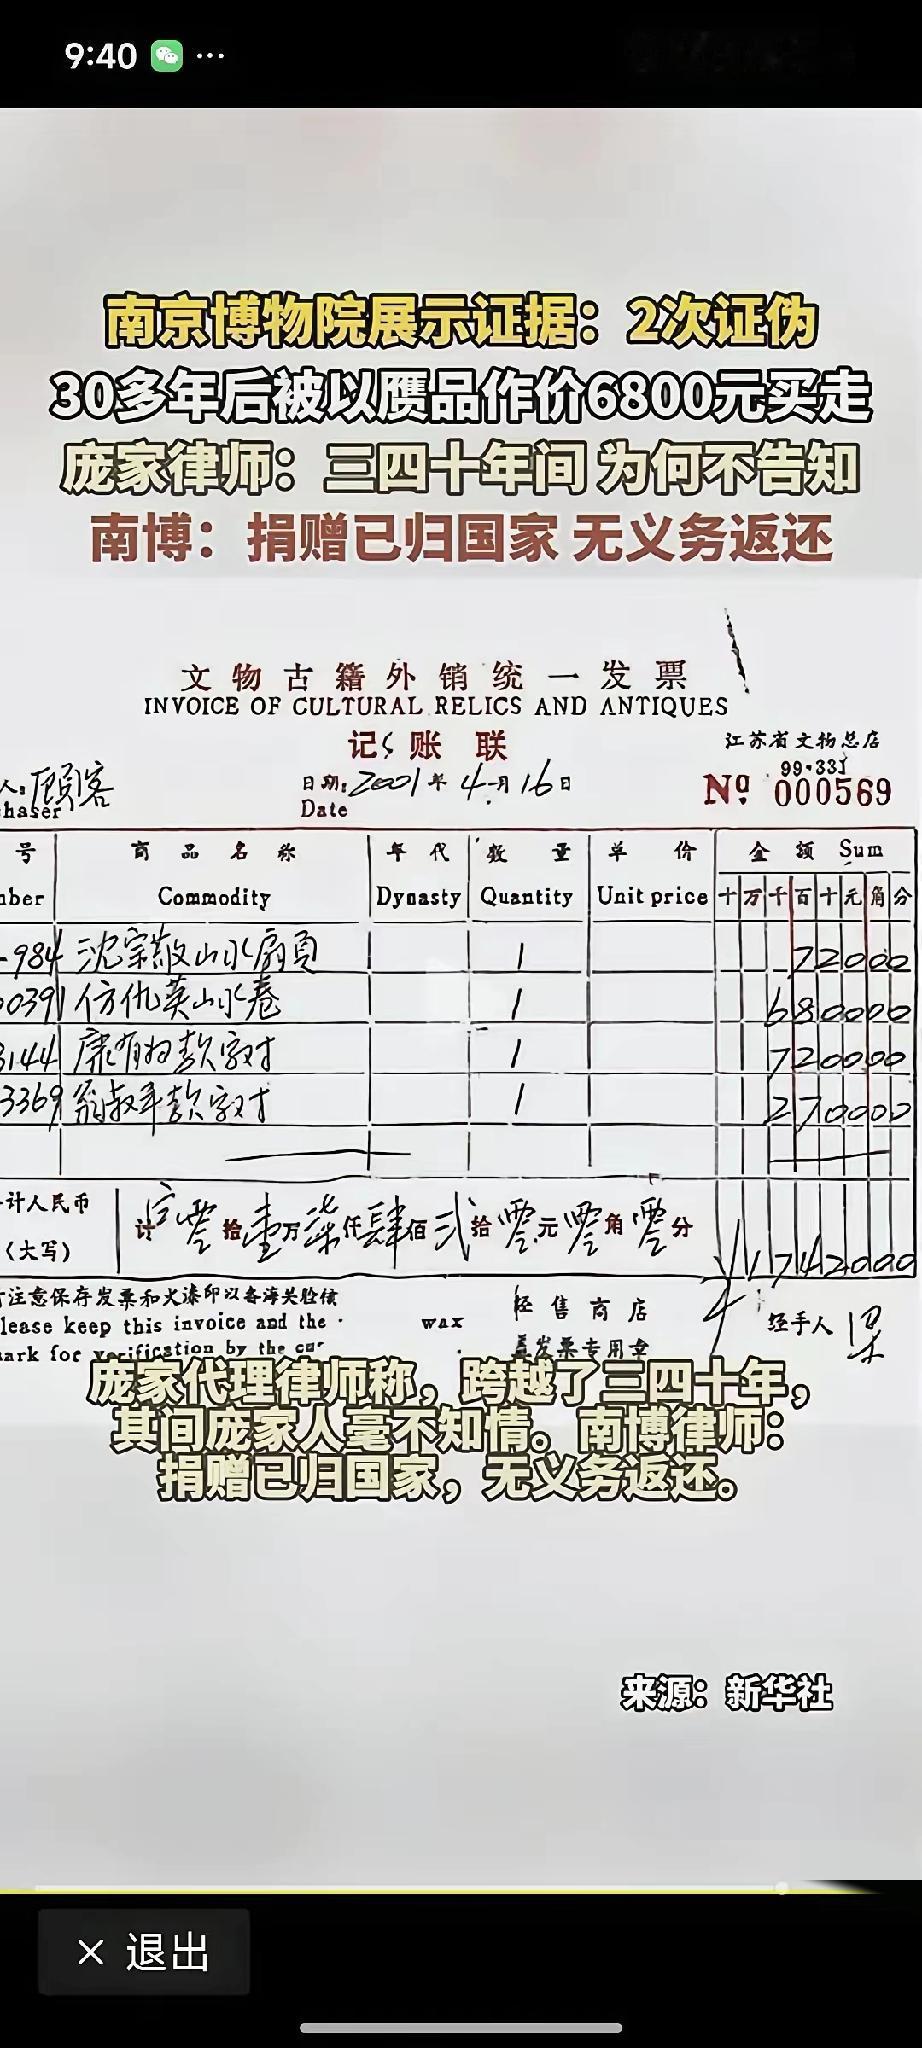 9:40
南京博物院展示证据：2次证伪
30多年后被以赝品作价6800元买走
庞家律师：三四十年间 为何不告知
南博：捐赠已归国家 无义务返还
文物古籍外销统一发票
INVOICE OF CULTURAL RELICS AND ANTIQUES
记账联
江苏省文物总店
99·33J
人：顾客
haser
日期：2001年4月16日
Date
No 000569
号 商品名称 年代 数量 单价 金额 Sum
nber Commodity Dynasty Quantity Unit price 十万千百十元角分
-984 沈宗敬山水扇页 1 72000
0391 仿仇英山水卷 1 680000
3144 康有为款字对 1 720000
3369 翁叔平款字对 1 270000
计人民币
（大写）
计 零拾壹万柒仟肆佰贰拾零元零角零分 ¥1742000
注意保存发票和火漆印以备海关验核
lease keep this invoice and the wax
mark for verification by the cu
经售商店
盖发票专用章
经手人 梁
庞家代理律师称，跨越了三四十年，
其间庞家人毫不知情。南博律师：
捐赠已归国家，无义务返还。
来源：新华社
× 退出